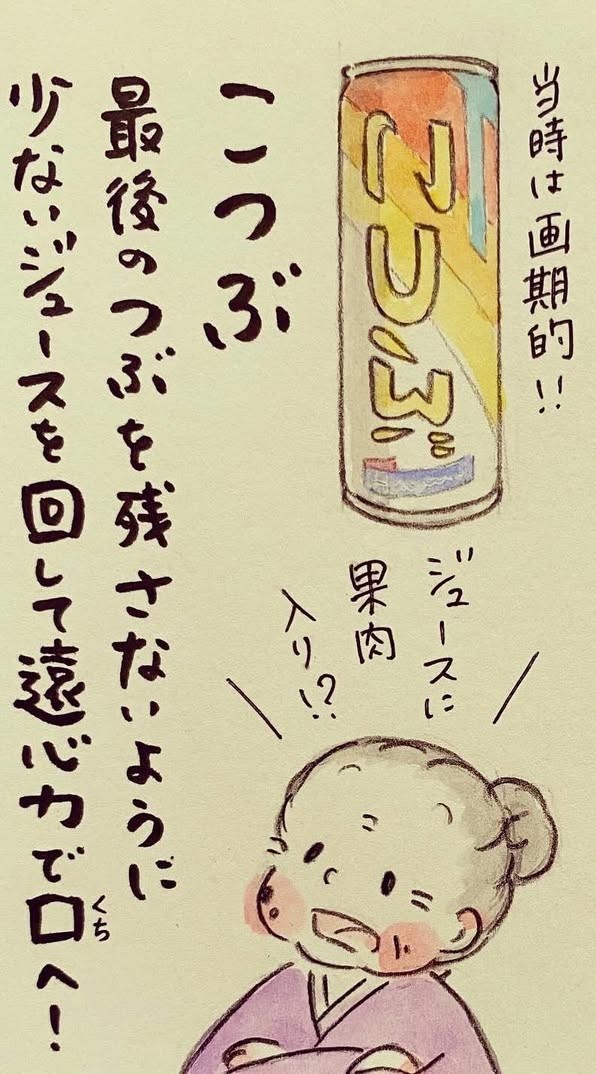 当時は画期的!!
こつぶ
ジュースに
果肉
入り!?
こつぶ
最後のつぶを残さないように
少ないジュースを回して遠心力で口へ!
くち